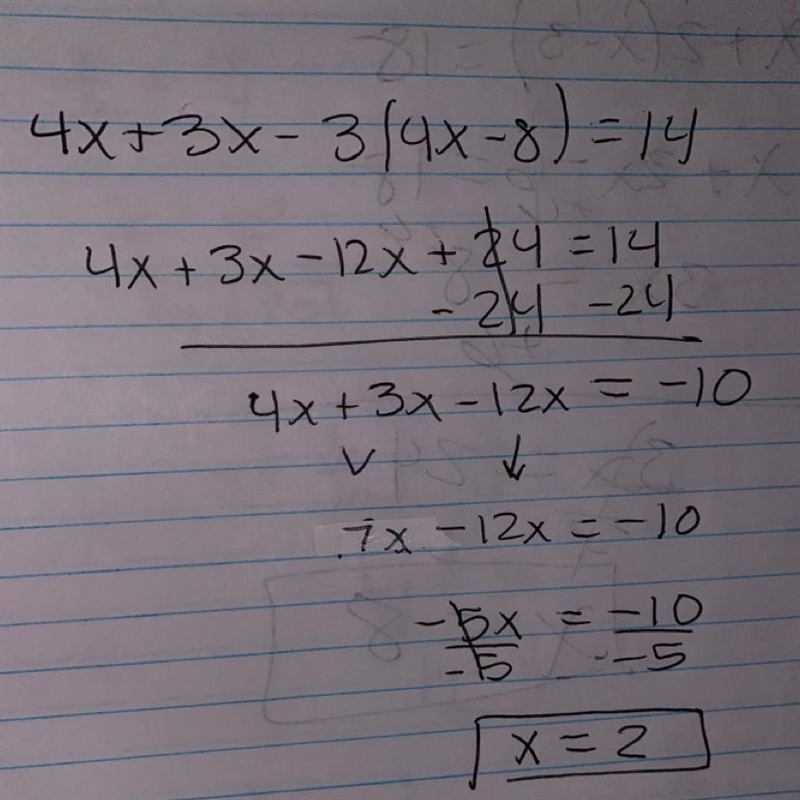 4x+3x-3(4x-8)=14
4x+3x-12x+24=14
-24 -24
4x+3x-12x=-10
7x-12x=-10
-5x = -10
-5 -5
x=2